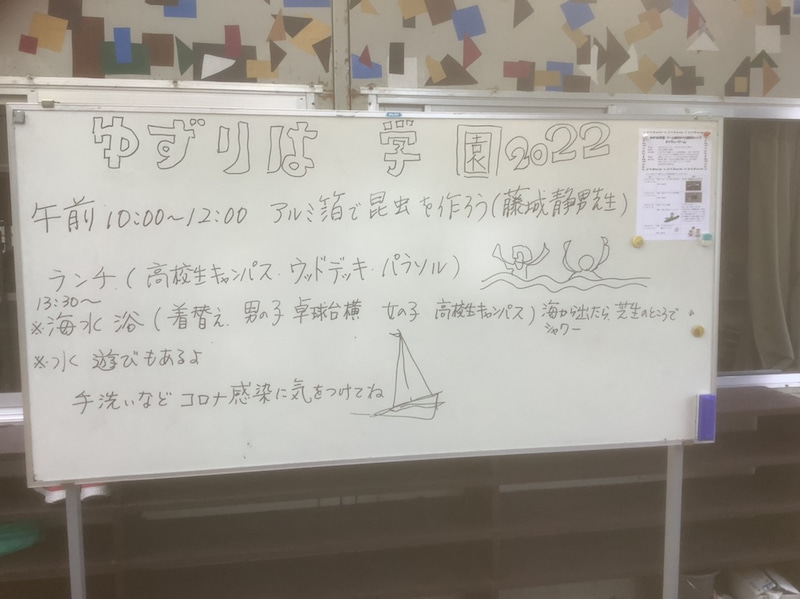 ゆずりは 学園 2022
午前 10:00～12:00 アルミ箔で昆虫を作ろう(藤城静男先生)
ランチ.(高校生キャンパス・ウッドデッキ・パラソル)
13:30～
※海水浴(着替え、男の子 卓球台横 女の子 高校生キャンパス)海から出たら、芝生のところで
シャワー
※水遊びもあるよ
手洗いなど コロナ感染に気をつけてね